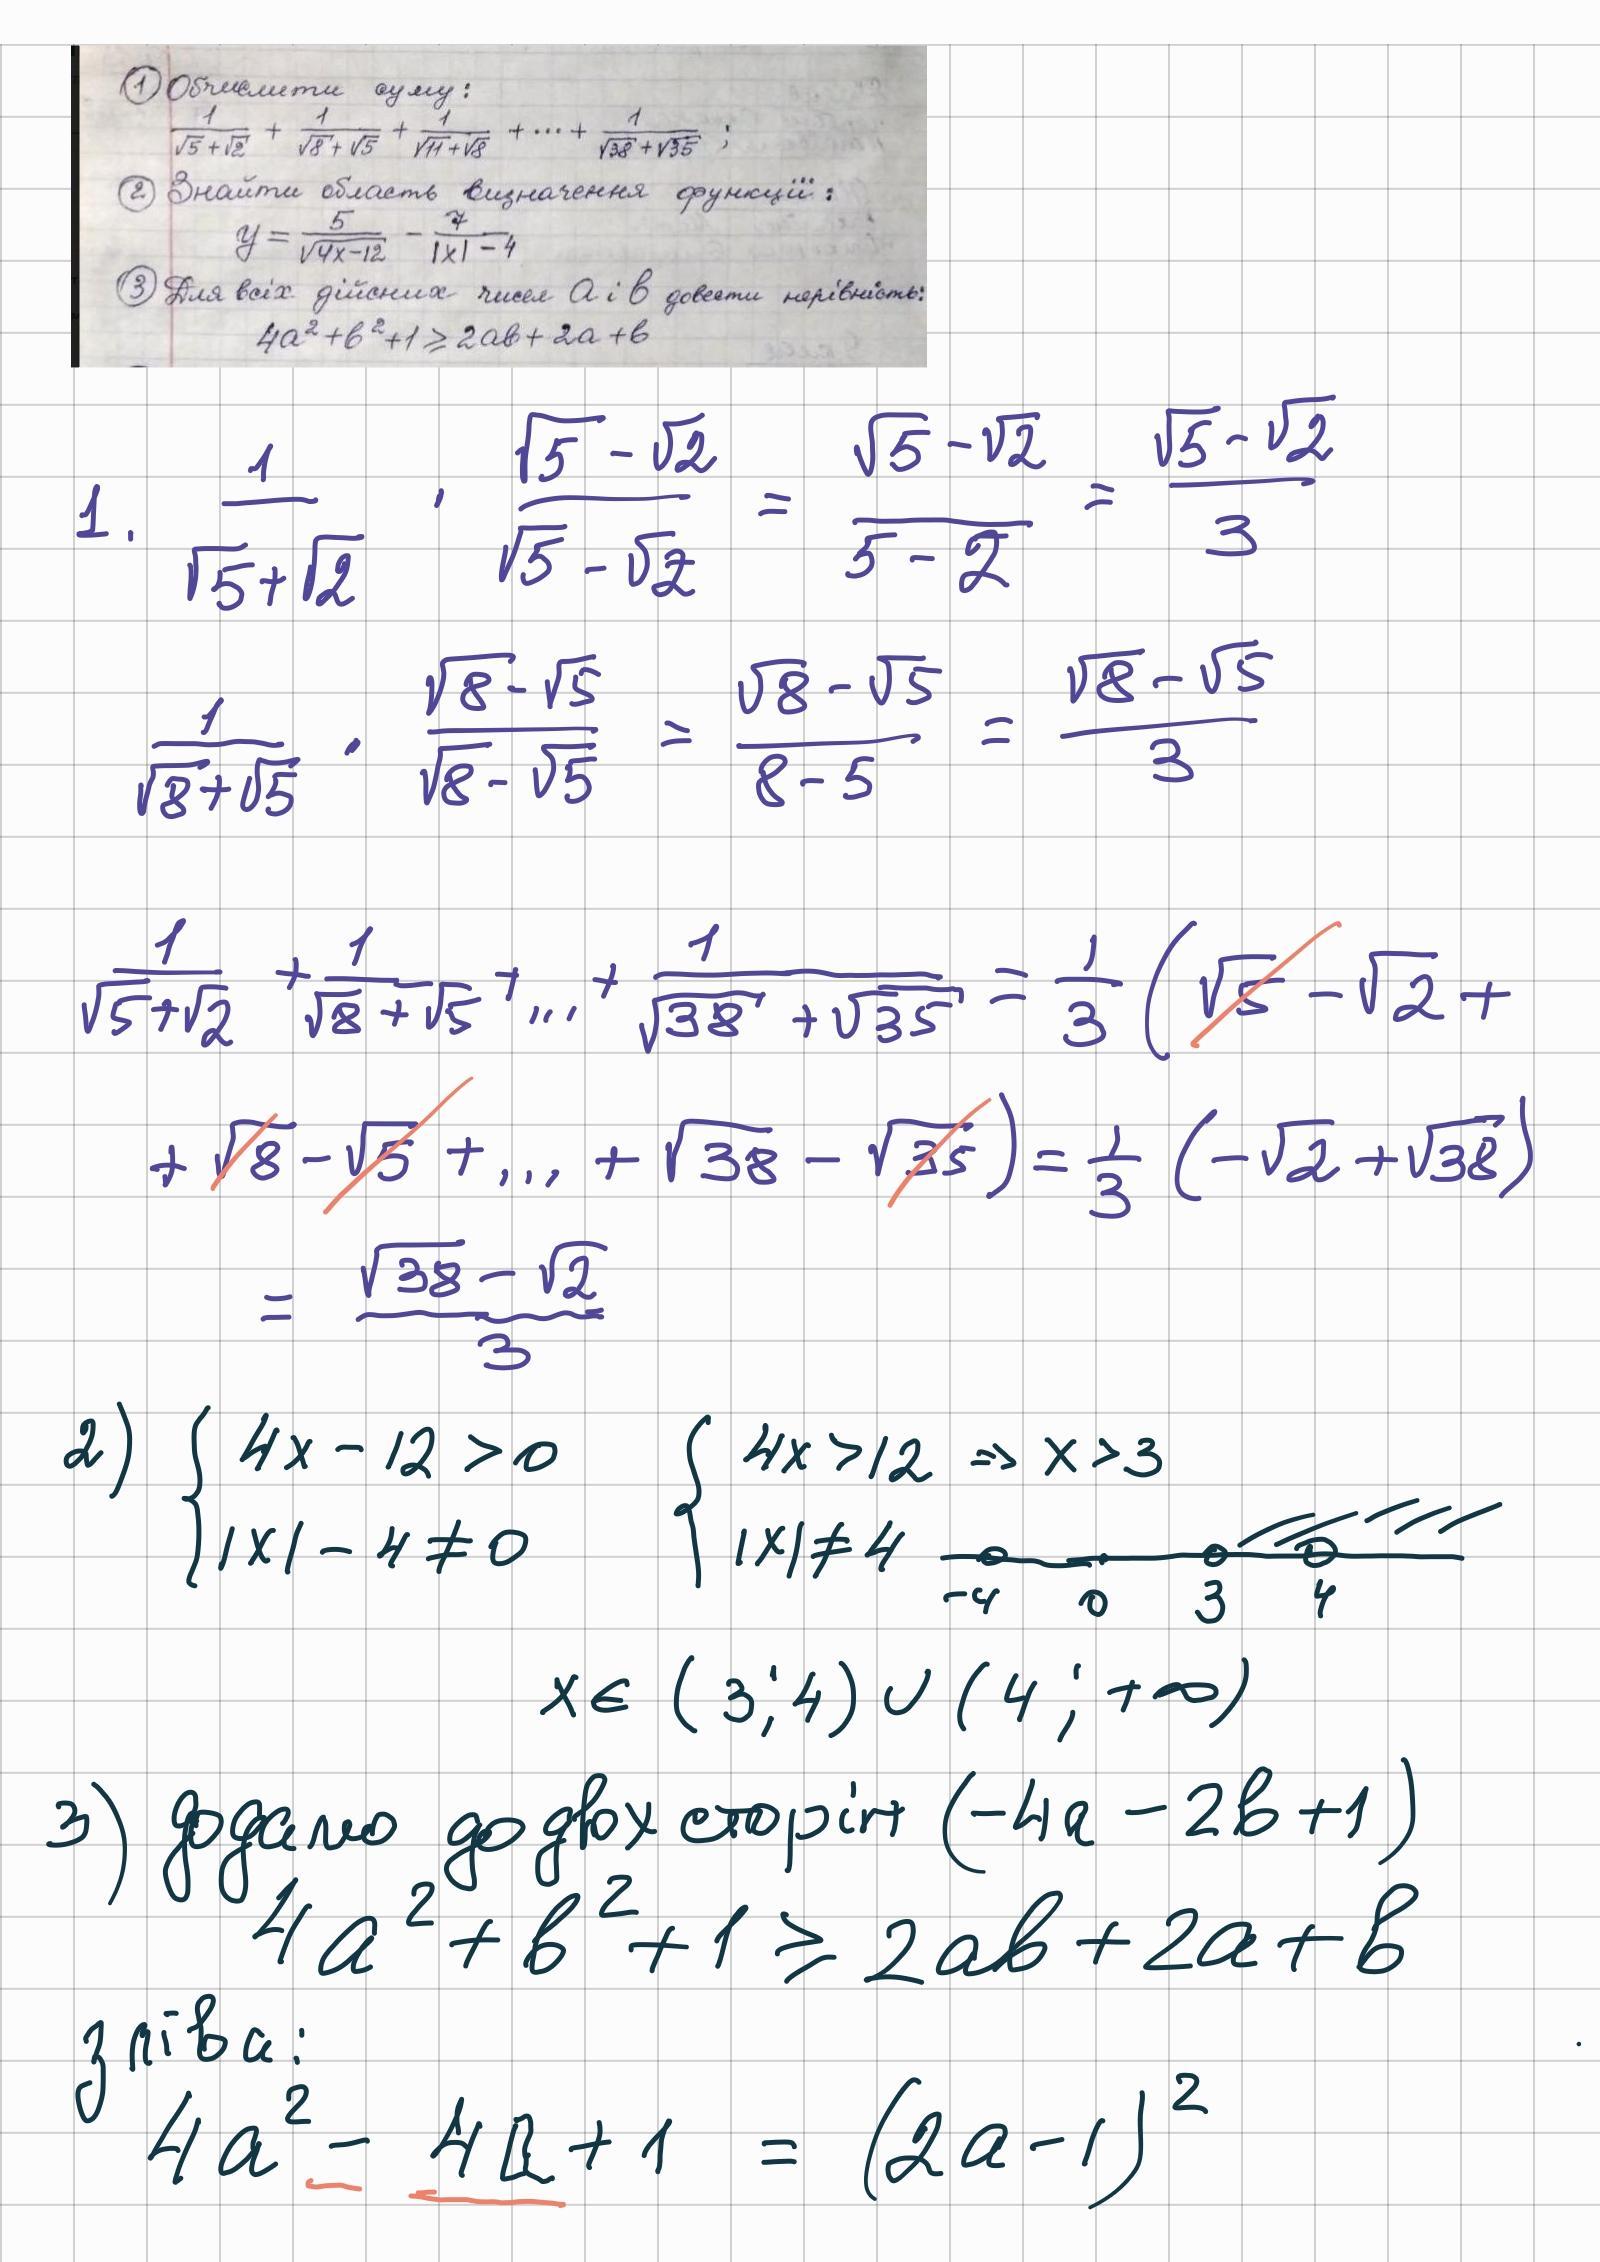 ① Обчислити суму:
1/(√5+√2) + 1/(√8+√5) + 1/(√11+√8) + ... + 1/(√38+√35) ;
② Знайти область визначення функції:
y = 5/√(4x-12) - 7/(|x|-4)
③ Для всіх дійсних чисел a і b довести нерівність:
4a²+b²+1 ⩾ 2ab+2a+b
1. 1/(√5+√2) · (√5-√2)/(√5-√2) = (√5-√2)/(5-2) = (√5-√2)/3
1/(√8+√5) · (√8-√5)/(√8-√5) = (√8-√5)/(8-5) = (√8-√5)/3
1/(√5+√2) + 1/(√8+√5) + ... + 1/(√38+√35) = 1/3 (√5-√2+
+√8-√5+...+√38-√35) = 1/3 (-√2+√38)
= (√38-√2)/3
2) { 4x-12>0 { 4x>12 ⇒ x>3
|x|-4≠0 |x|≠4
-4 0 3 4
x∈(3;4)∪(4;+∞)
3) додамо до двох сторін (-4a-2b+1)
4a²+b²+1⩾2ab+2a+b
зліва:
4a²-4a+1 = (2a-1)²